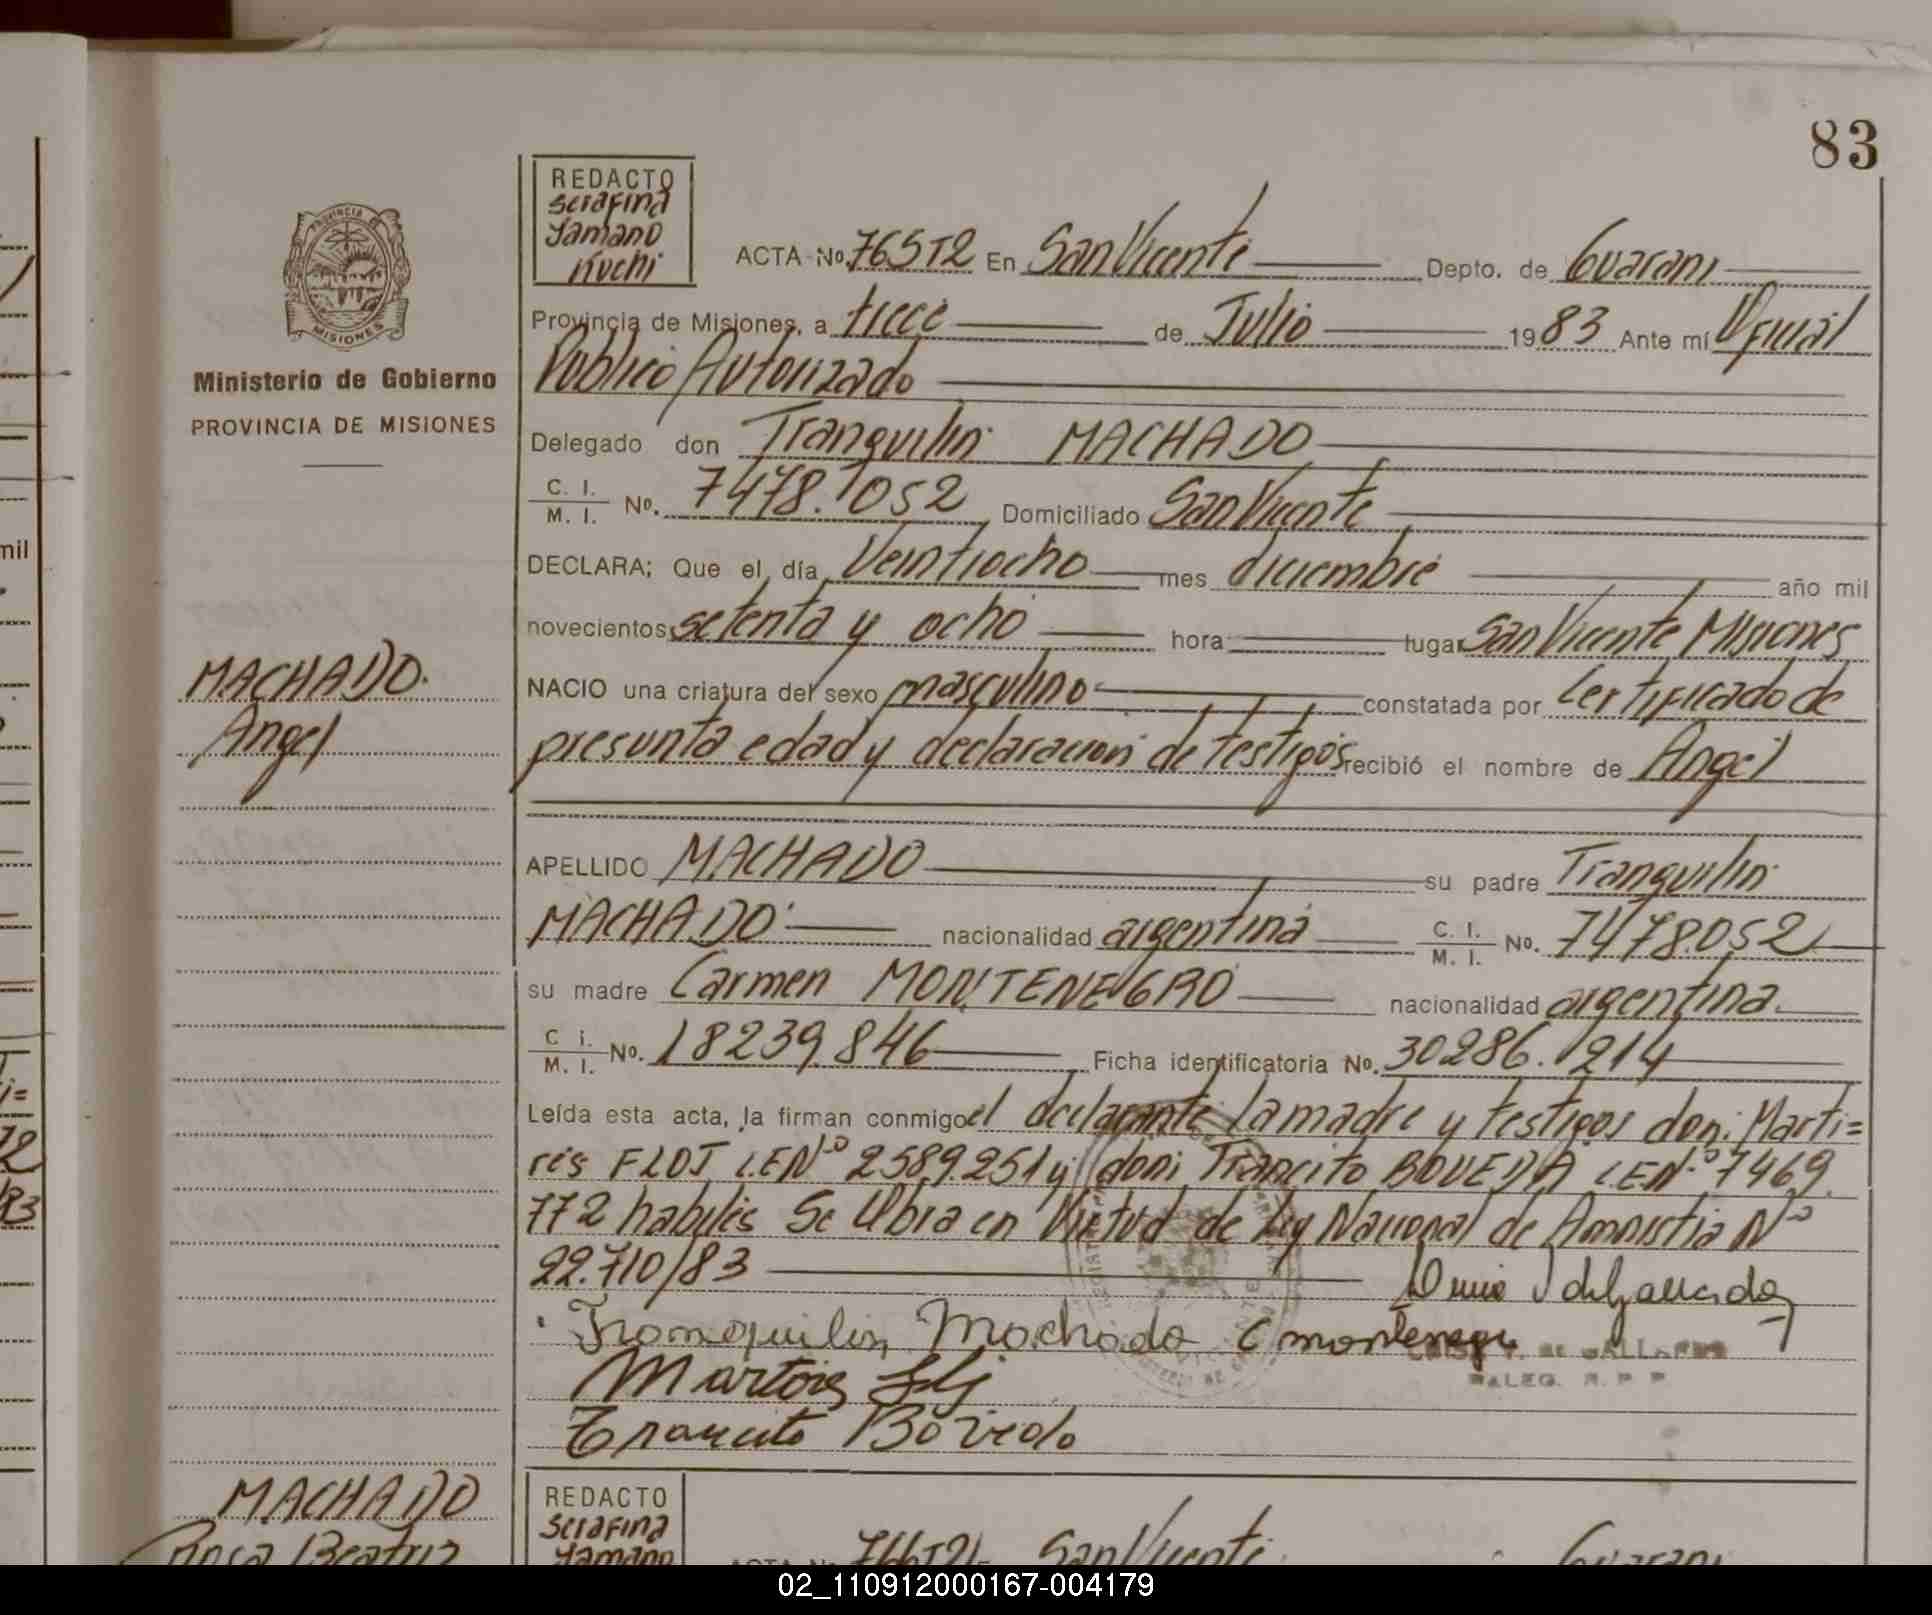 83
REDACTO
serafina
Yamano
Kuchi
ACTA Nº 765T2 En San Vicente Depto. de Guarani
Provincia de Misiones, a trece de Julio 1983 Ante mí Oficial
Publico Autorizado
Delegado don Tranquilin MACHADO
C. I. / M. I. Nº. 7478.052 Domiciliado San Vicente
DECLARA; Que el día Veintiocho mes diciembre año mil
novecientos setenta y ocho hora lugar San Vicente Misiones
NACIO una criatura del sexo masculino constatada por Certificado de
presunta edad y declaracion de testigos recibió el nombre de Angel
APELLIDO MACHADO su padre Tranquilin
MACHADO nacionalidad argentina C. I. / M. I. Nº. 7478.052
su madre Carmen MONTENEGRO nacionalidad argentina
C i. / M. I. Nº. 18239.846 Ficha identificatoria Nº. 30286.214
Leída esta acta, la firman conmigo el declarante la madre y testigos don: Marti=
res FLOJ L.E.Nº 2589.251 y don: Trancito BOVEDA L.E.Nº 7469.
772 habiles Se labra en Virtud de Ley Nacional de Amnistia Nº
22.710/83
Tranquilin Machado C montenegro
Martires Floj
Trancito Boveda
PROVINCIA DE
MISIONES
Ministerio de Gobierno
PROVINCIA DE MISIONES
MACHADO.
Angel
MACHADO
Rosa Beatriz
REDACTO
serafina
Yamano
San Vicente Guarani
mil
72
83
02_110912000167-004179